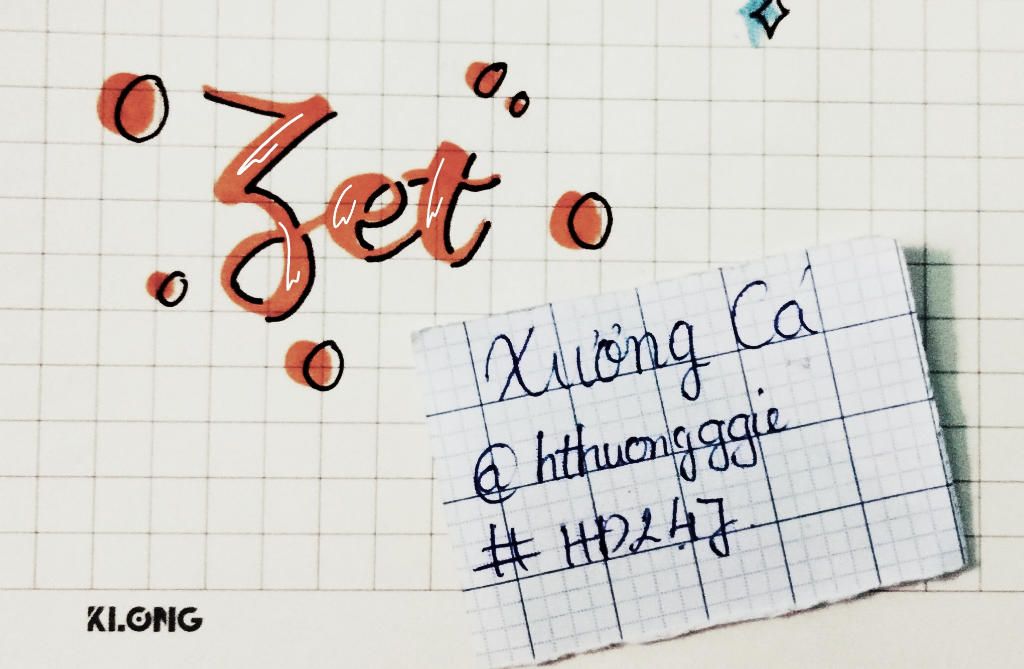 Zet
Xương Cá
@hthuongggie
#HD247
KLONG